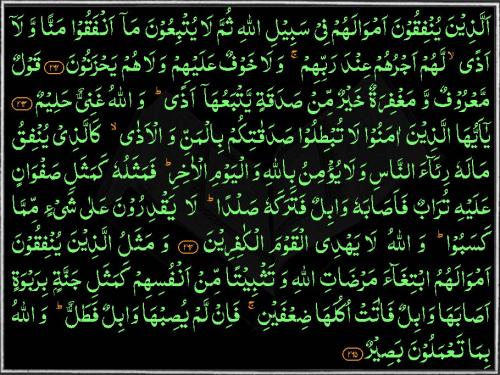 اَلَّذِيۡنَ يُنۡفِقُوۡنَ اَمۡوَالَهُمۡ فِىۡ سَبِيۡلِ اللّٰهِ ثُمَّ لَا يُتۡبِعُوۡنَ مَاۤ اَنۡفَقُوۡا مَنًّا وَّلَاۤ
اَذًىۙ لَّهُمۡ اَجۡرُهُمۡ عِنۡدَ رَبِّهِمۡۚ وَلَا خَوۡفٌ عَلَيۡهِمۡ وَلَا هُمۡ يَحۡزَنُوۡنَ ﴿۲۶۲﴾ قَوۡلٌ
مَّعۡرُوۡفٌ وَّمَغۡفِرَةٌ خَيۡرٌ مِّنۡ صَدَقَةٍ يَّتۡبَعُهَاۤ اَذًىؕ وَاللّٰهُ غَنِىٌّ حَلِيۡمٌ ﴿۲۶۳﴾
يٰۤاَيُّهَا الَّذِيۡنَ اٰمَنُوۡا لَا تُبۡطِلُوۡا صَدَقٰتِكُمۡ بِالۡمَنِّ وَالۡاَذٰىۙ كَالَّذِىۡ يُنۡفِقُ
مَالَهٗ رِئَآءَ النَّاسِ وَلَا يُؤۡمِنُ بِاللّٰهِ وَالۡيَوۡمِ الۡاٰخِرِؕ فَمَثَلُهٗ كَمَثَلِ صَفۡوَانٍ
عَلَيۡهِ تُرَابٌ فَاَصَابَهٗ وَابِلٌ فَتَرَكَهٗ صَلۡدًاؕ لَا يَقۡدِرُوۡنَ عَلٰى شَىۡءٍ مِّمَّا
كَسَبُوۡاؕ وَاللّٰهُ لَا يَهۡدِى الۡقَوۡمَ الۡكٰفِرِيۡنَ ﴿۲۶۴﴾ وَمَثَلُ الَّذِيۡنَ يُنۡفِقُوۡنَ
اَمۡوَالَهُمُ ابۡتِغَآءَ مَرۡضَاتِ اللّٰهِ وَتَثۡبِيۡتًا مِّنۡ اَنۡفُسِهِمۡ كَمَثَلِ جَنَّةٍۢ بِرَبۡوَةٍ
اَصَابَهَا وَابِلٌ فَاٰتَتۡ اُكُلَهَا ضِعۡفَيۡنِۚ فَاِنۡ لَّمۡ يُصِبۡهَا وَابِلٌ فَطَلٌّؕ وَاللّٰهُ
بِمَا تَعۡمَلُوۡنَ بَصِيۡرٌ ﴿۲۶۵﴾